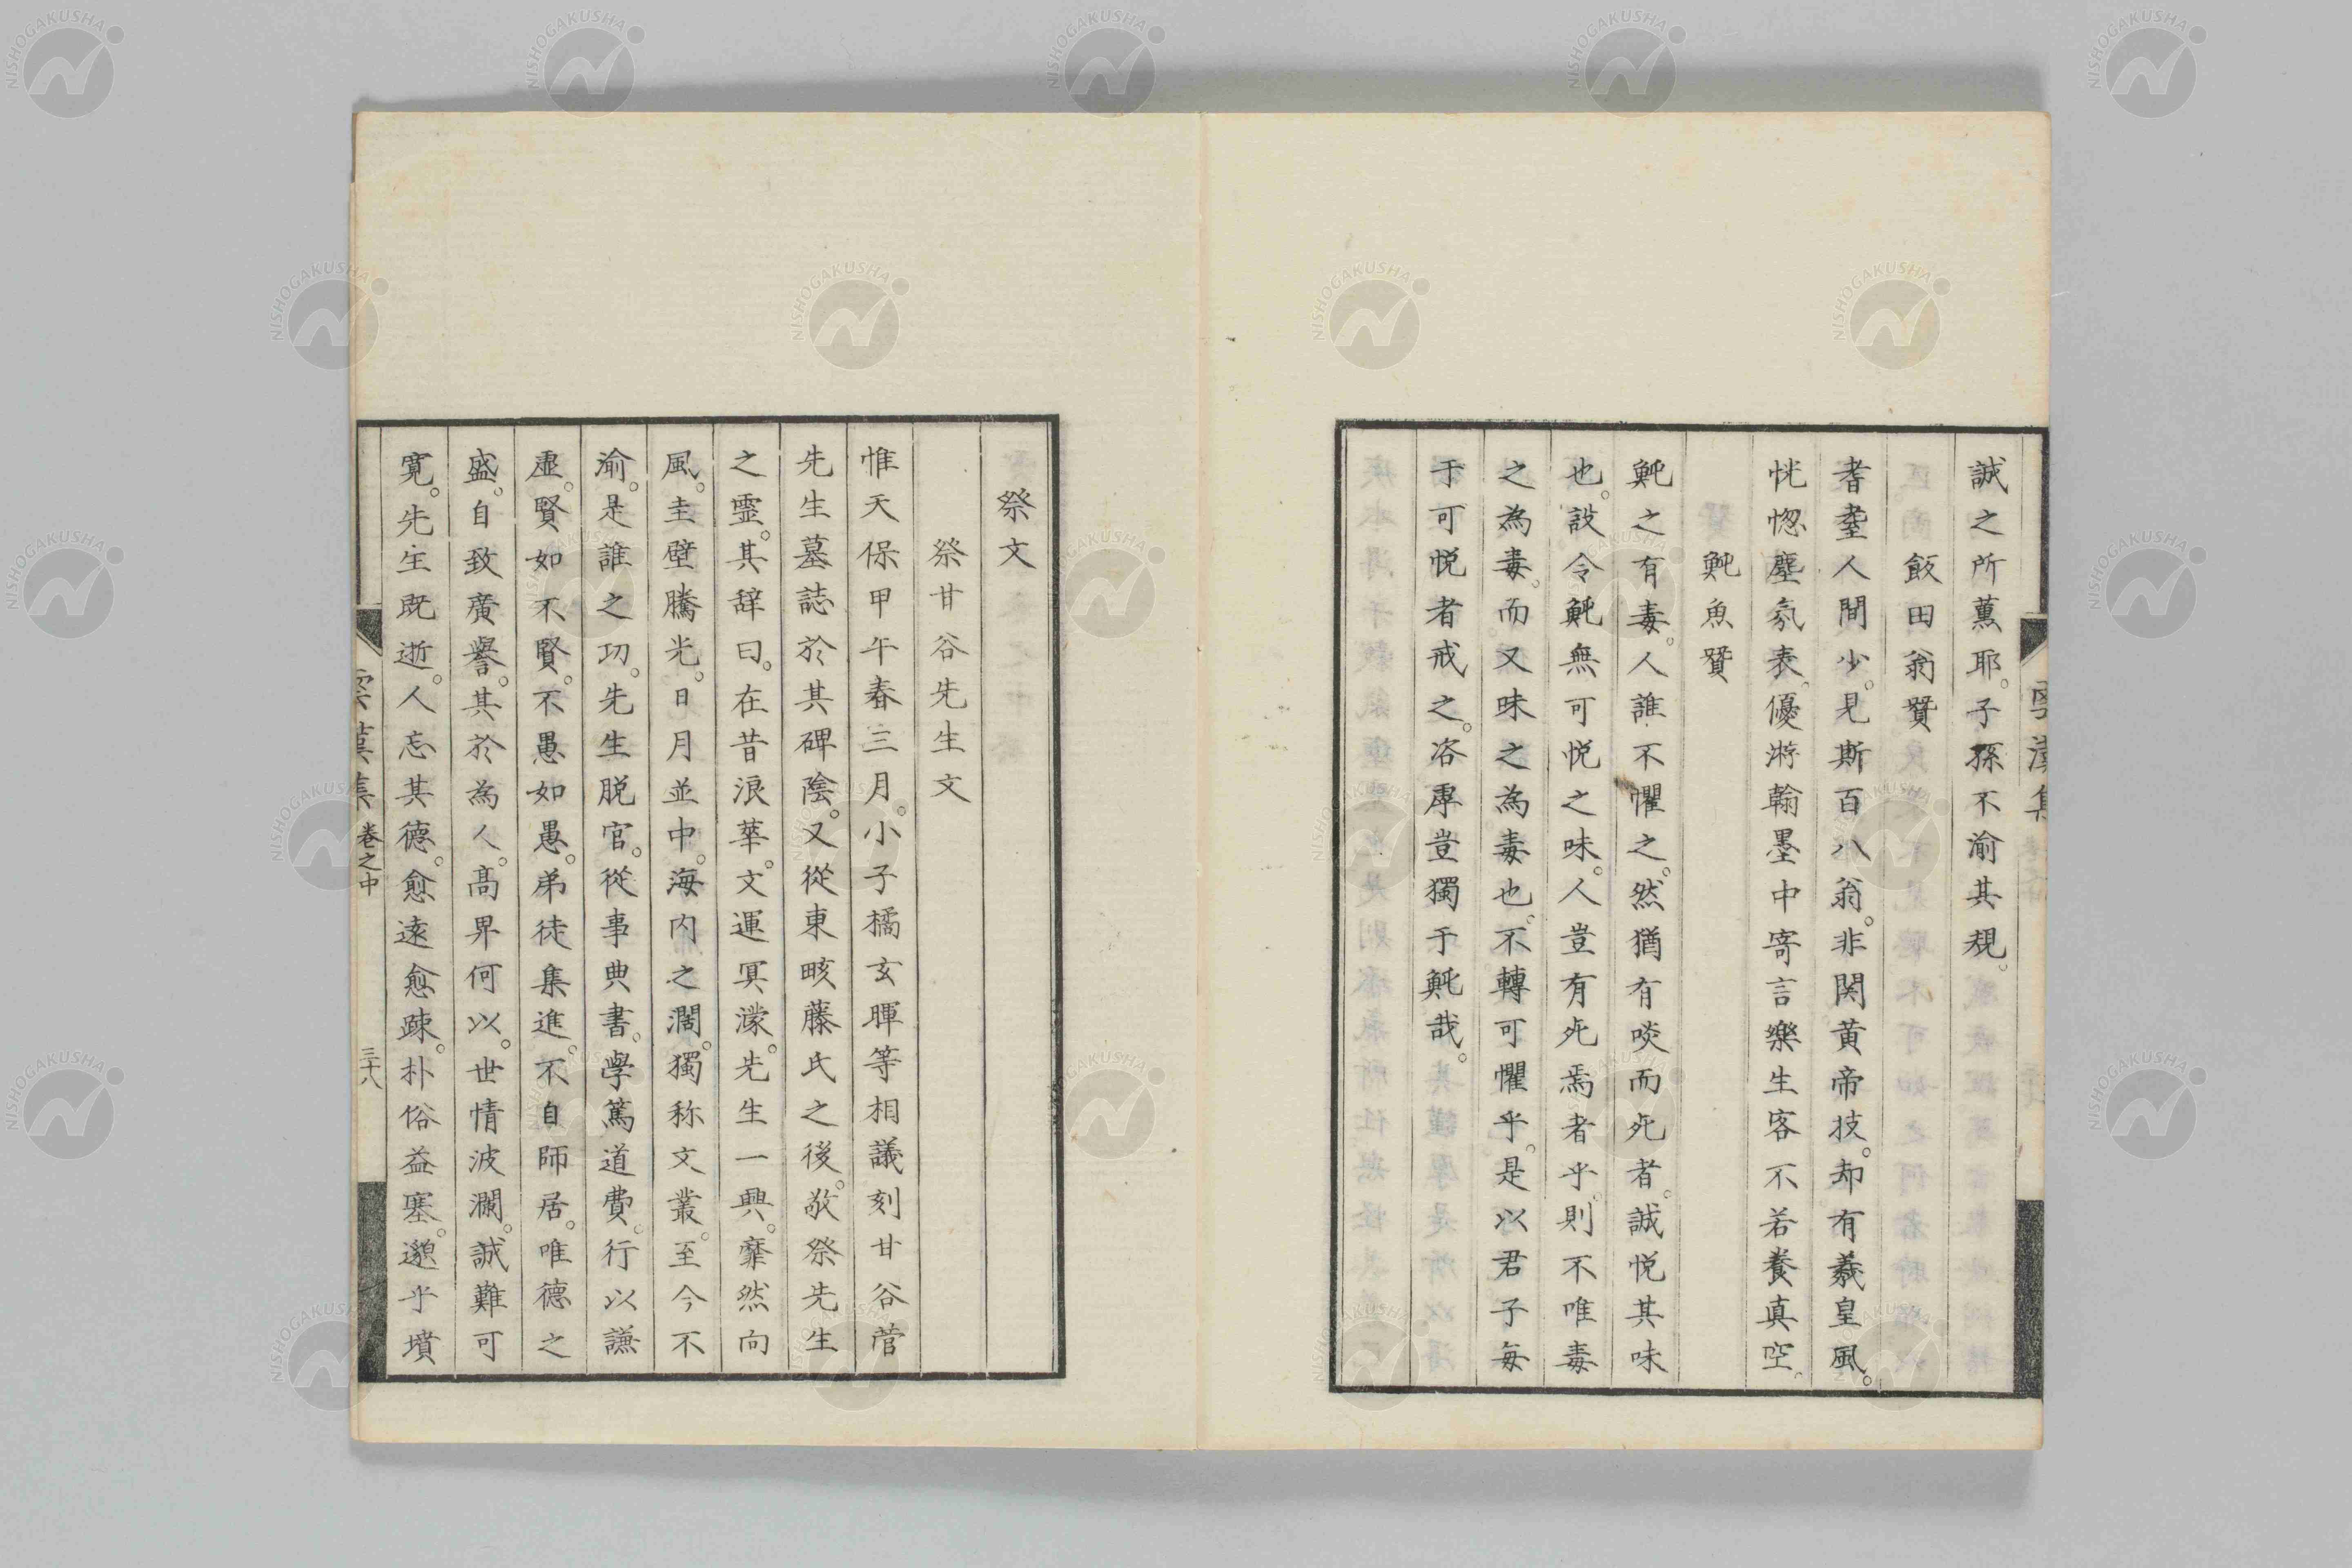 誠之所薫耶。子孫不渝其規。
飯田翁贊
耆耋人間少。見斯百八翁。非関黄帝技。却有羲皇風。
恍惚塵氛表。優游翰墨中。寄言樂生客。不若養真空。
魨魚贊
魨之有毒。人誰不懼之。然猶有啖而死者。誠悦其味
也。設令魨無可悦之味。人豈有死焉者乎。則不唯毒
之為毒。而又味之為毒也。不轉可懼乎。是以君子毎
于可悦者戒之。咨虖豈獨于魨哉。
祭文
祭甘谷先生文
惟天保甲午春三月。小子橘玄暉等相議刻甘谷菅
先生墓誌於其碑陰。又從東畡藤氏之後。敬祭先生
之靈。其辞曰。在昔浪華。文運冥濛。先生一興。靡然向
風。圭璧騰光。日月並中。海内之濶。獨称文叢。至今不
渝。是誰之功。先生脱官。從事典書。學篤道費。行以謙
虚。賢如不賢。不愚如愚。弟徒集進。不自師居。唯德之
盛。自致廣譽。其於為人。高界何以。世情波瀾。誠難可
寛。先生既逝。人忘其德。愈遠愈疎。朴俗益塞。邈乎墳
雲漢集 卷之中 三十八
NISHOGAKUSHA